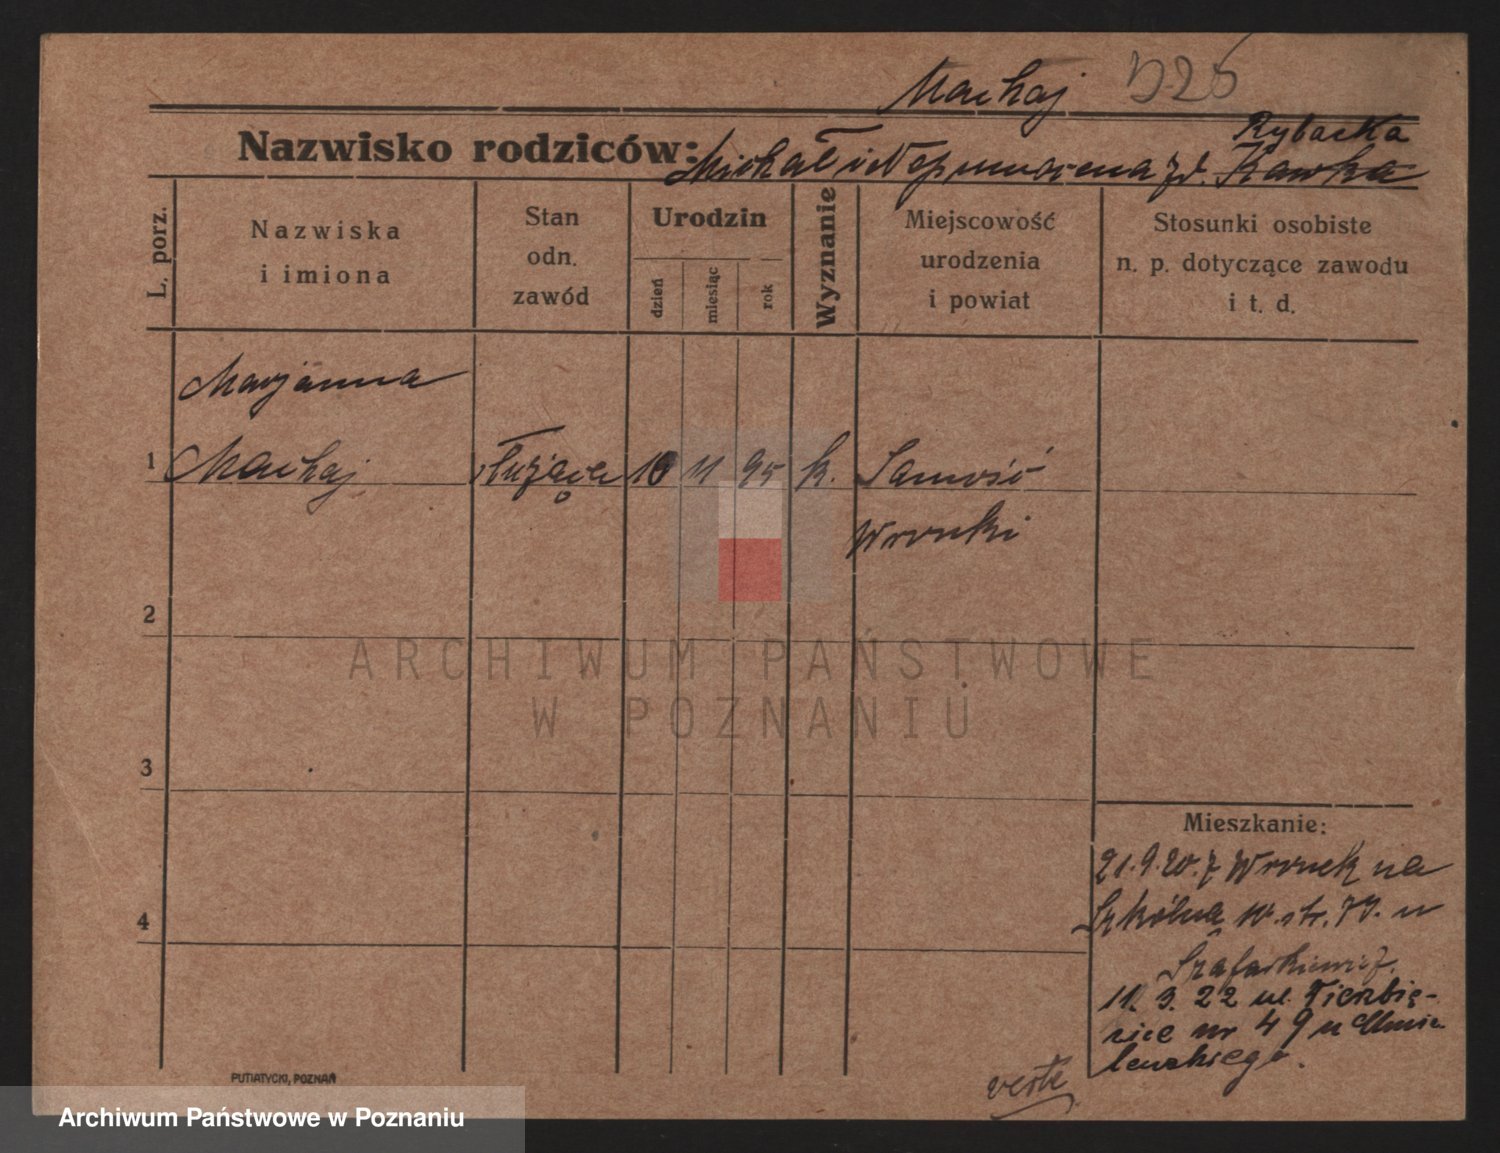 Machaj
Nazwisko rodziców: Michał i Nepomucena zd. Kawka
Rybacka
L. porz.
Nazwiska
i imiona
Stan
odn.
zawód
Urodzin
dzień
miesiąc
rok
Wyznanie
Miejscowość
urodzenia
i powiat
Stosunki osobiste
n. p. dotyczące zawodu
i t. d.
Marjanna
1 Machaj służąca 10 11 95 k. Samość
Wronki
2
3
4
Mieszkanie:
21.9.20. z Wronek na
Szkólna str. u
Szafarkiewicz.
11. 3. 22 ul. Wierzbię-
cice nr 49 u Chmie
lewskiego.
verte
PUTIATYCKI, POZNAŃ
ARCHIWUM PAŃSTWOWE
W POZNANIU
Archiwum Państwowe w Poznaniu